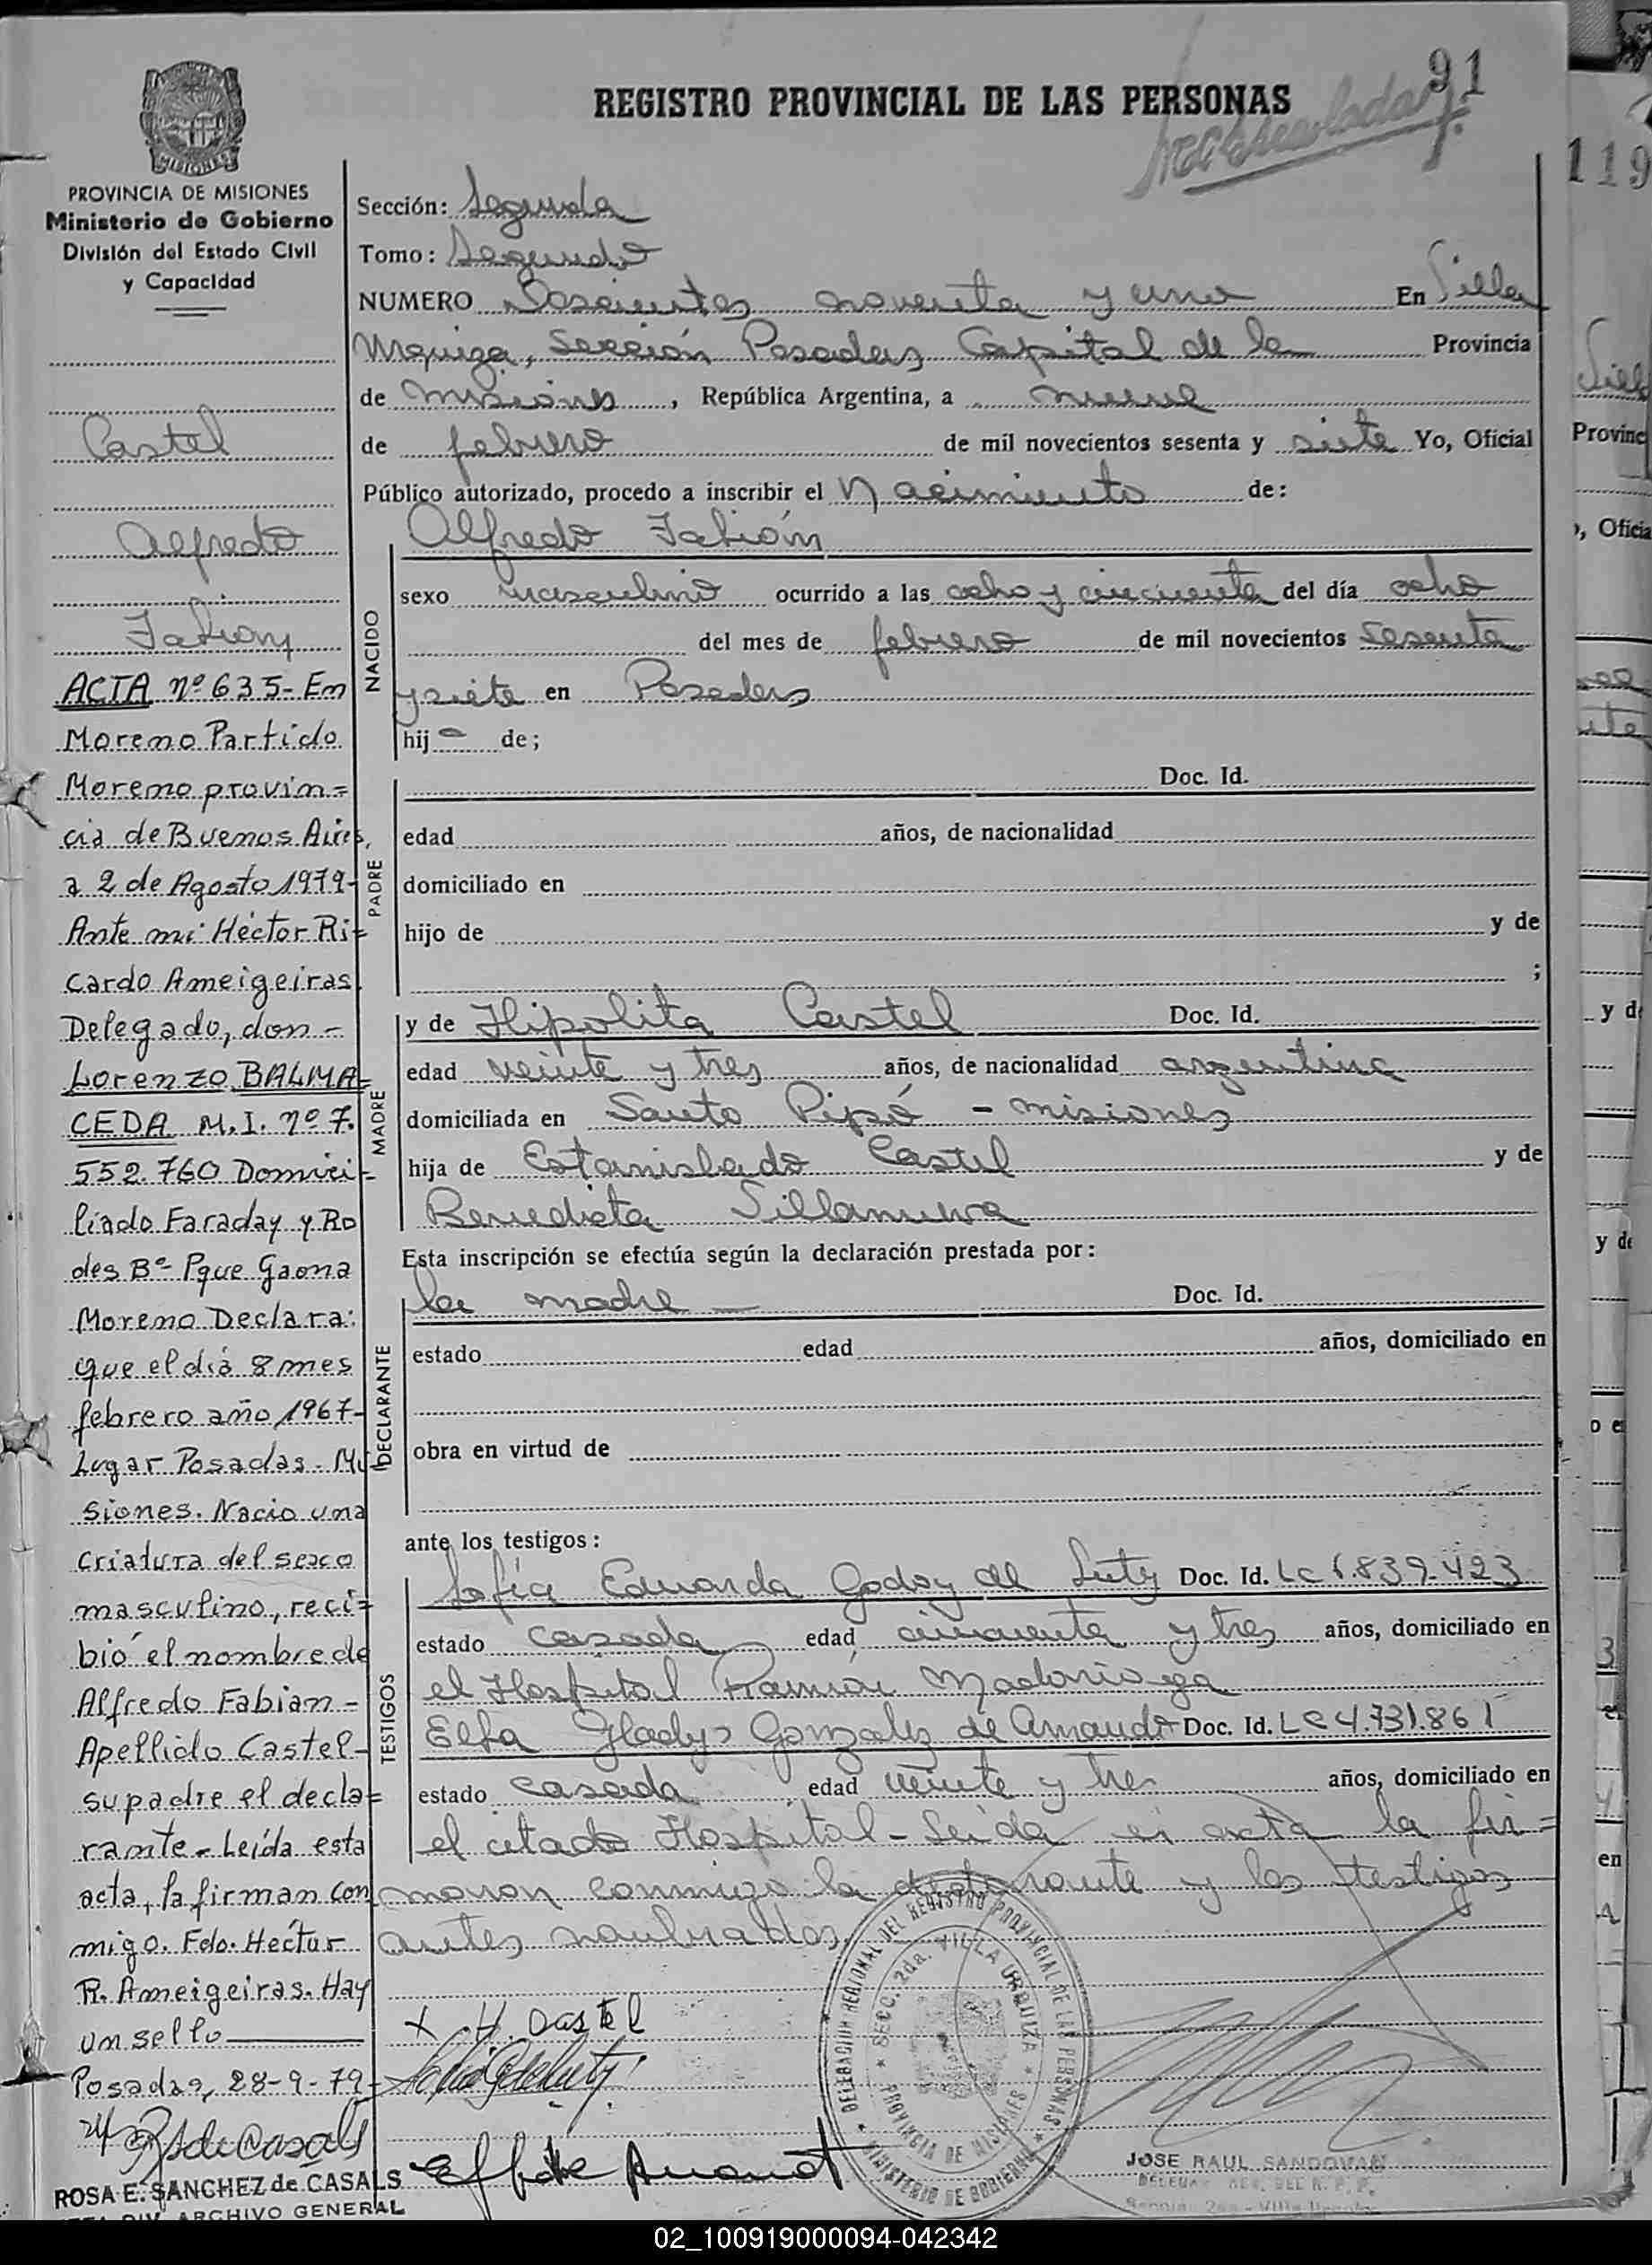 91
REGISTRO PROVINCIAL DE LAS PERSONAS
MISIONES
PROVINCIA DE MISIONES
Ministerio de Gobierno
División del Estado Civil
y Capacidad
Castel
Alfredo
Fabian
ACTA Nº 635- En
Moreno Partido
Moreno provin=
cia de Buenos Aires,
a 2 de Agosto 1979-
Ante mi Héctor Ri=
cardo Ameigeiras
Delegado, don -
Lorenzo BALMA=
CEDA M.I. nº 7.
552.760 Domici-
liado Faraday y Ro
des Bº Pque Gaona
Moreno Declara:
que el día 8 mes
febrero año 1967-
Lugar Posadas - Mi-
siones. Nacio una
criatura del sexo
masculino, reci=
bió el nombre de
Alfredo Fabian -
Apellido Castel -
su padre el decla=
rante - Leída esta
acta, la firman con
migo. Fdo. Héctor
R. Ameigeiras. Hay
un sello
Posadas, 28-9-79-
ROSA E. SANCHEZ de CASALS
DIV. ARCHIVO GENERAL
Sección: Segunda
Tomo: Segundo
NUMERO Doscientos noventa y uno En Villa
Urquiza, Sección Posadas Capital de la Provincia
de Misiones, República Argentina, a nueve
de febrero de mil novecientos sesenta y siete Yo, Oficial
Público autorizado, procedo a inscribir el Nacimiento de:
NACIDO
Alfredo Fabián
sexo masculino ocurrido a las ocho y cincuenta del día ocho
del mes de febrero de mil novecientos sesenta
y siete en Posadas
hijo de;
PADRE
Doc. Id.
edad años, de nacionalidad
domiciliado en
hijo de y de
;
MADRE
y de Hipolita Castel Doc. Id.
edad veinte y tres años, de nacionalidad argentina
domiciliada en Santo Pipó - Misiones
hija de Estanislado Castel y de
Benedicta Villanueva
Esta inscripción se efectúa según la declaración prestada por:
DECLARANTE
la madre — Doc. Id.
estado edad años, domiciliado en
obra en virtud de
ante los testigos:
TESTIGOS
Sofía Eduarda Godoy de Doc. Id. LC 6.839.423
estado casada edad cincuenta y tres años, domiciliado en
el Hospital Ramón Madoriaga
Elfa Gladys Gonzalez de Doc. Id. LC 4.731.861
estado casada edad veinte y tres años, domiciliado en
el citado Hospital - Leida el acta la fir=
maron conmigo la declarante y los testigos
antes nombrados.
X H. Castel
DELEGACION REGIONAL DEL REGISTRO PROVINCIAL DE LAS PERSONAS
MINISTERIO DE GOBIERNO
SECC. 2da. VILLA URQUIZA
PROVINCIA DE MISIONES
JOSE RAUL SANDOVAL
119
Provinc
, Oficia
y de
y de
en
02_100919000094-042342